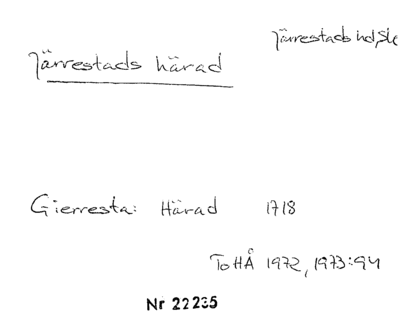 Järrestads hd, Sk
Järrestads härad
Gierresta: Härad 1718
ToHÅ 1972, 1973:94
Nr 22235